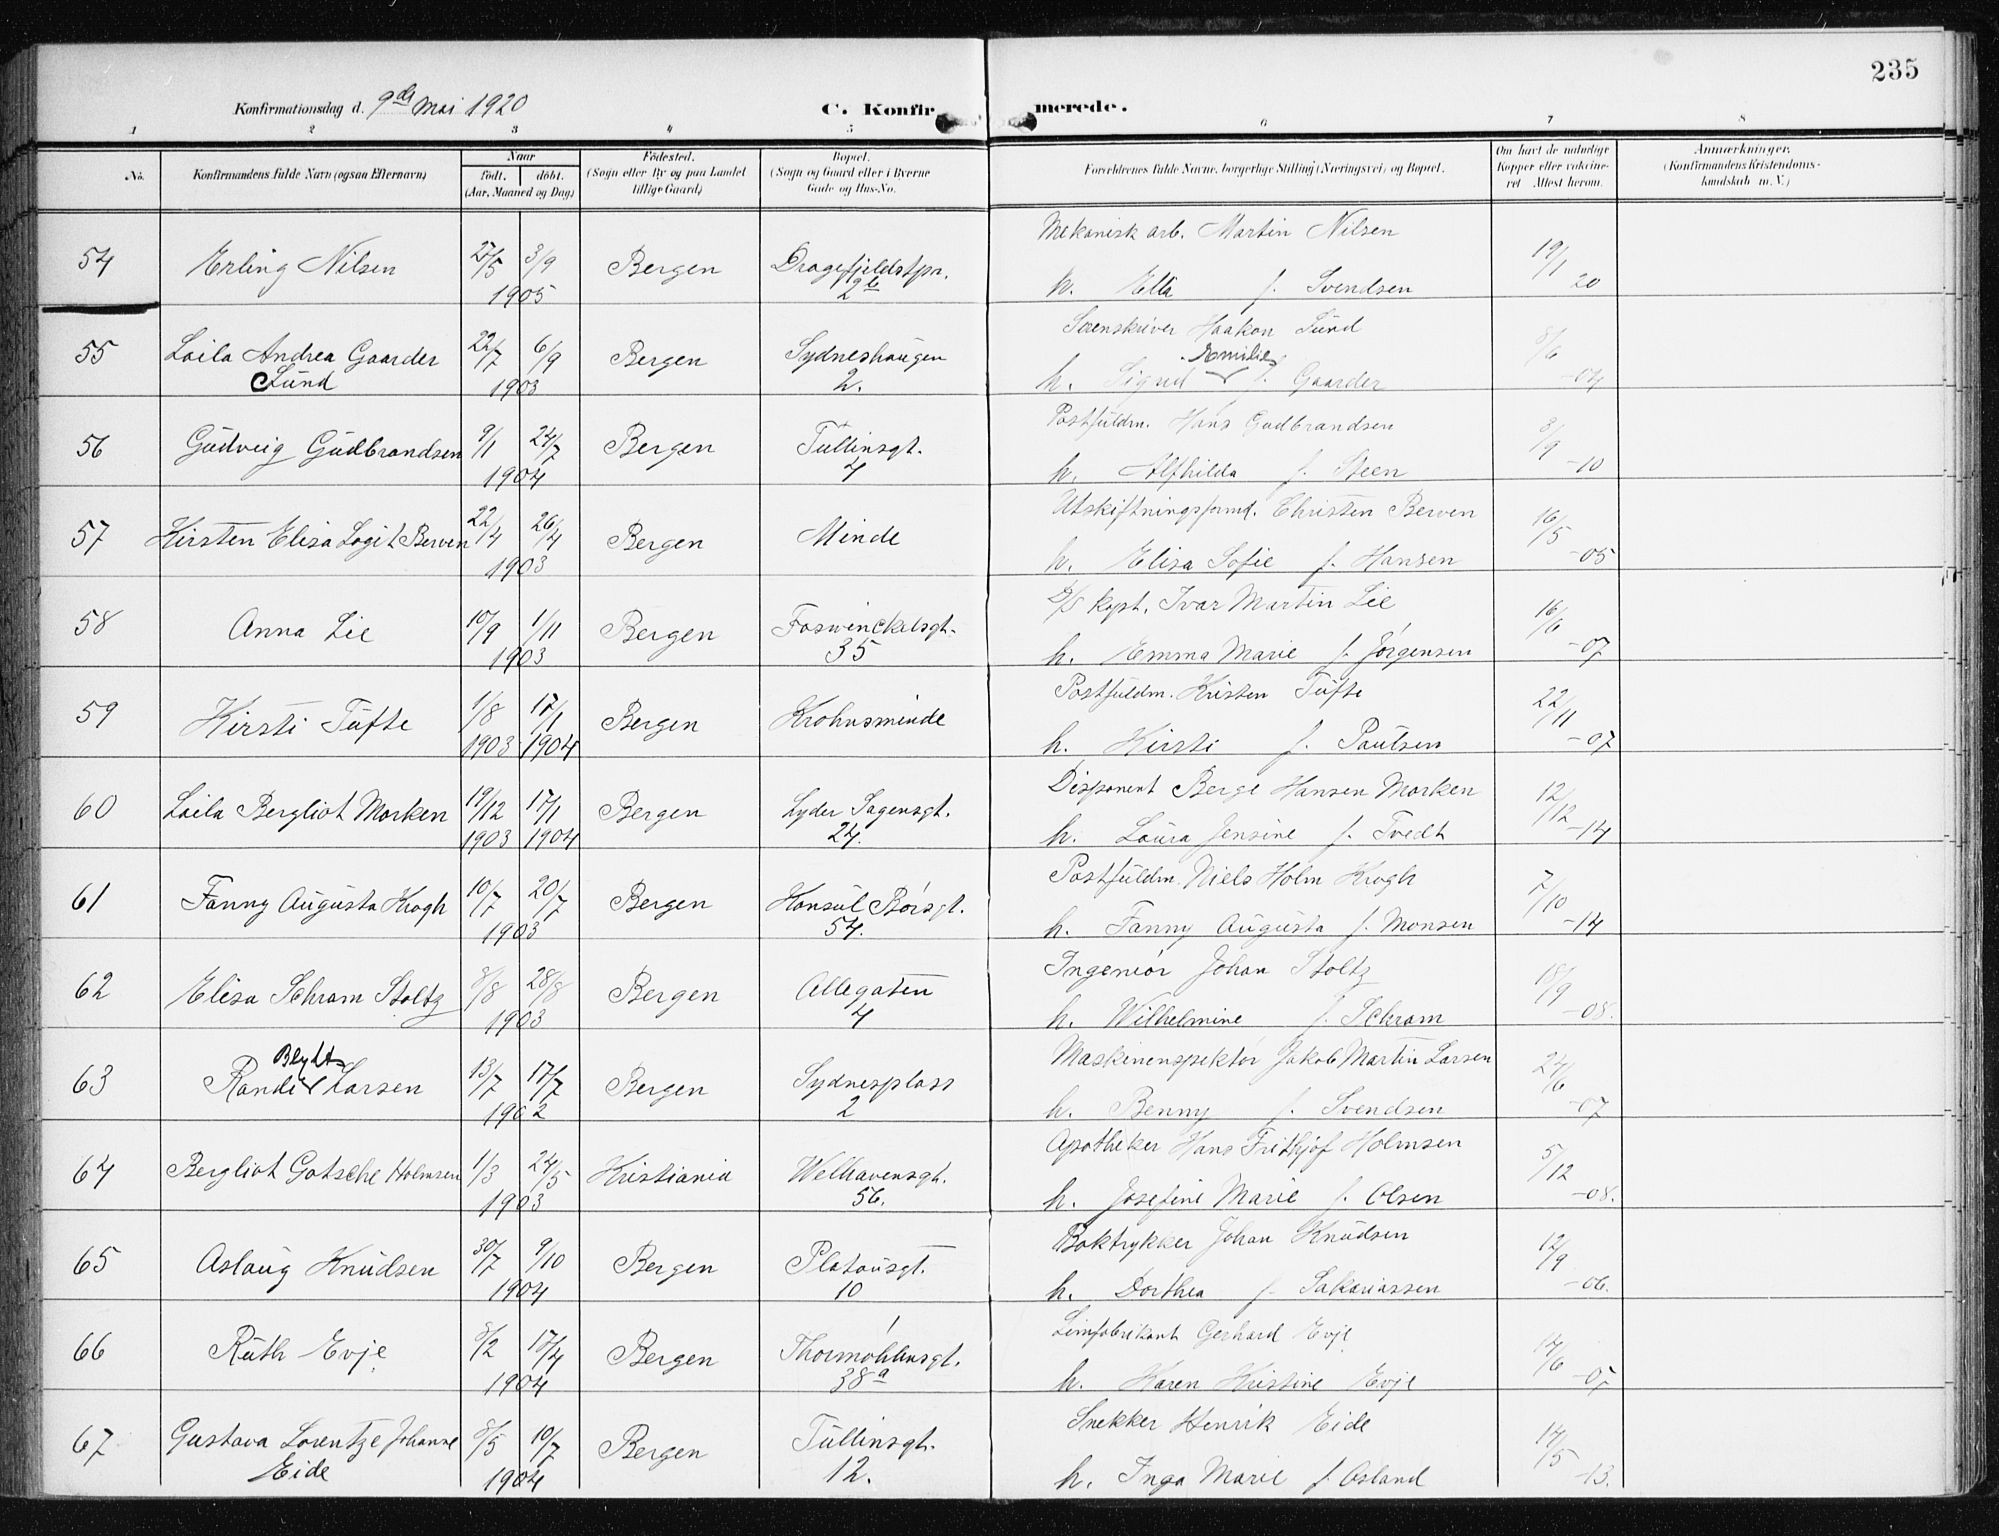 235
Konfirmationsdag d. 9de Mai 1920
C. Konfirmerede.
1 2 3 4 5 6 7 8
No.
Konfirmandens fulde Navn (ogsaa Efternavn)
Naar
født. døbt.
(Aar, Maaned og Dag)
Fødested.
(Sogn eller By og paa Landet
tillige Gaard)
Bopæl.
(Sogn og Gaard eller i Byerne
Gade og Hus-No.
Forældrenes fulde Navne, borgerlige Stilling (Næringsvei) og Bopæl.
Om havt de naturlige
Kopper eller vakcine-
ret Attest herom.
Anmærkninger.
(Konfirmandens Kristendoms-
kundskab m. V.)
Mekanisk arb. Martin Nilsen
54 Erling Nilsen 27/5 3/9 Bergen Dragefjeldstpr. 19/1
1905 2b h. Ella f. Svendsen 20
Sorenskriver Haakon Lund
55 Laila Andrea Gaarder 22/7 6/9 Bergen Sydneshaugen Emilie 8/6
Lund 1903 2. h. Sigrid f. Gaarder -04
Postfuldm. Hans Gudbrandsen
56 Gudveig Gudbrandsen 9/1 24/7 Bergen Tullinsgt. 3/9
1904 4 h. Alfhilda f. Steen -10
Utskiftningsformd. Christen Berven
57 Kirsten Elisa Berven 22/4 26/4 Bergen Minde 16/5
1903 h. Elisa Sofie f. Hansen -05
D/S kapt. Ivar Martin Lie
58 Anna Lie 10/9 1/11 Bergen Foswinckelsgt. 16/6
1903 35 h. Emma Marie f. Jørgensen -07
Postfuldm. Kristen Tufte
59 Kirsti Tufte 1/8 17/1 Bergen Krohnsminde 22/11
1903 1904 h. Kirsti f. Paulsen -07
Disponent Berge Hansen Morken
60 Laila Bergliot Morken 19/12 17/1 Bergen Lyder Sagensgt. 12/12
1903 1904 24. h. Laura Jensine f. Tvedt -14
Postfuldm. Niels Holm Krogh
61 Fanny Augusta Krogh 10/7 20/7 Bergen Konsul Børsgt. 7/10
1903 54. h. Fanny Augusta f. Monsen -14
Ingeniør Johan Stoltz
62 Elisa Schram Stoltz 3/8 28/8 Bergen Allegaten 18/9
1903 4 h. Wilhelmine f. Schram -08.
Blytt Maskininspektør Jakob Martin Larsen
63 Randi Larsen 13/7 17/7 Bergen Sydnesplass 24/6
1902 2 h. Benny f. Svendsen -07
Apotheker Hans Frithjof Holmsen
64 Bergliot Gotsche Holmsen 1/3 24/5 Kristiania Welhavensgt. 5/12
1903 56. h. Josefine Marie f. Olsen -08.
Boktrykker Johan Knudsen
65 Aslaug Knudsen 30/7 9/10 Bergen Platousgt. 12/9
1904 10 h. Dorthea f. Sakariassen -06.
Limfabrikant Gerhard Evje
66 Ruth Evje 8/2 17/4 Bergen Thormøhlensgt. 14/6
1904 38a h. Karen Kristine Evje -07
Snekker Henrik Eide
67 Gustava Lorentze Johanne 8/5 10/7 Bergen Tullinsgt. 14/5
Eide 1904 12. h. Inga Marie f. Osland -13.